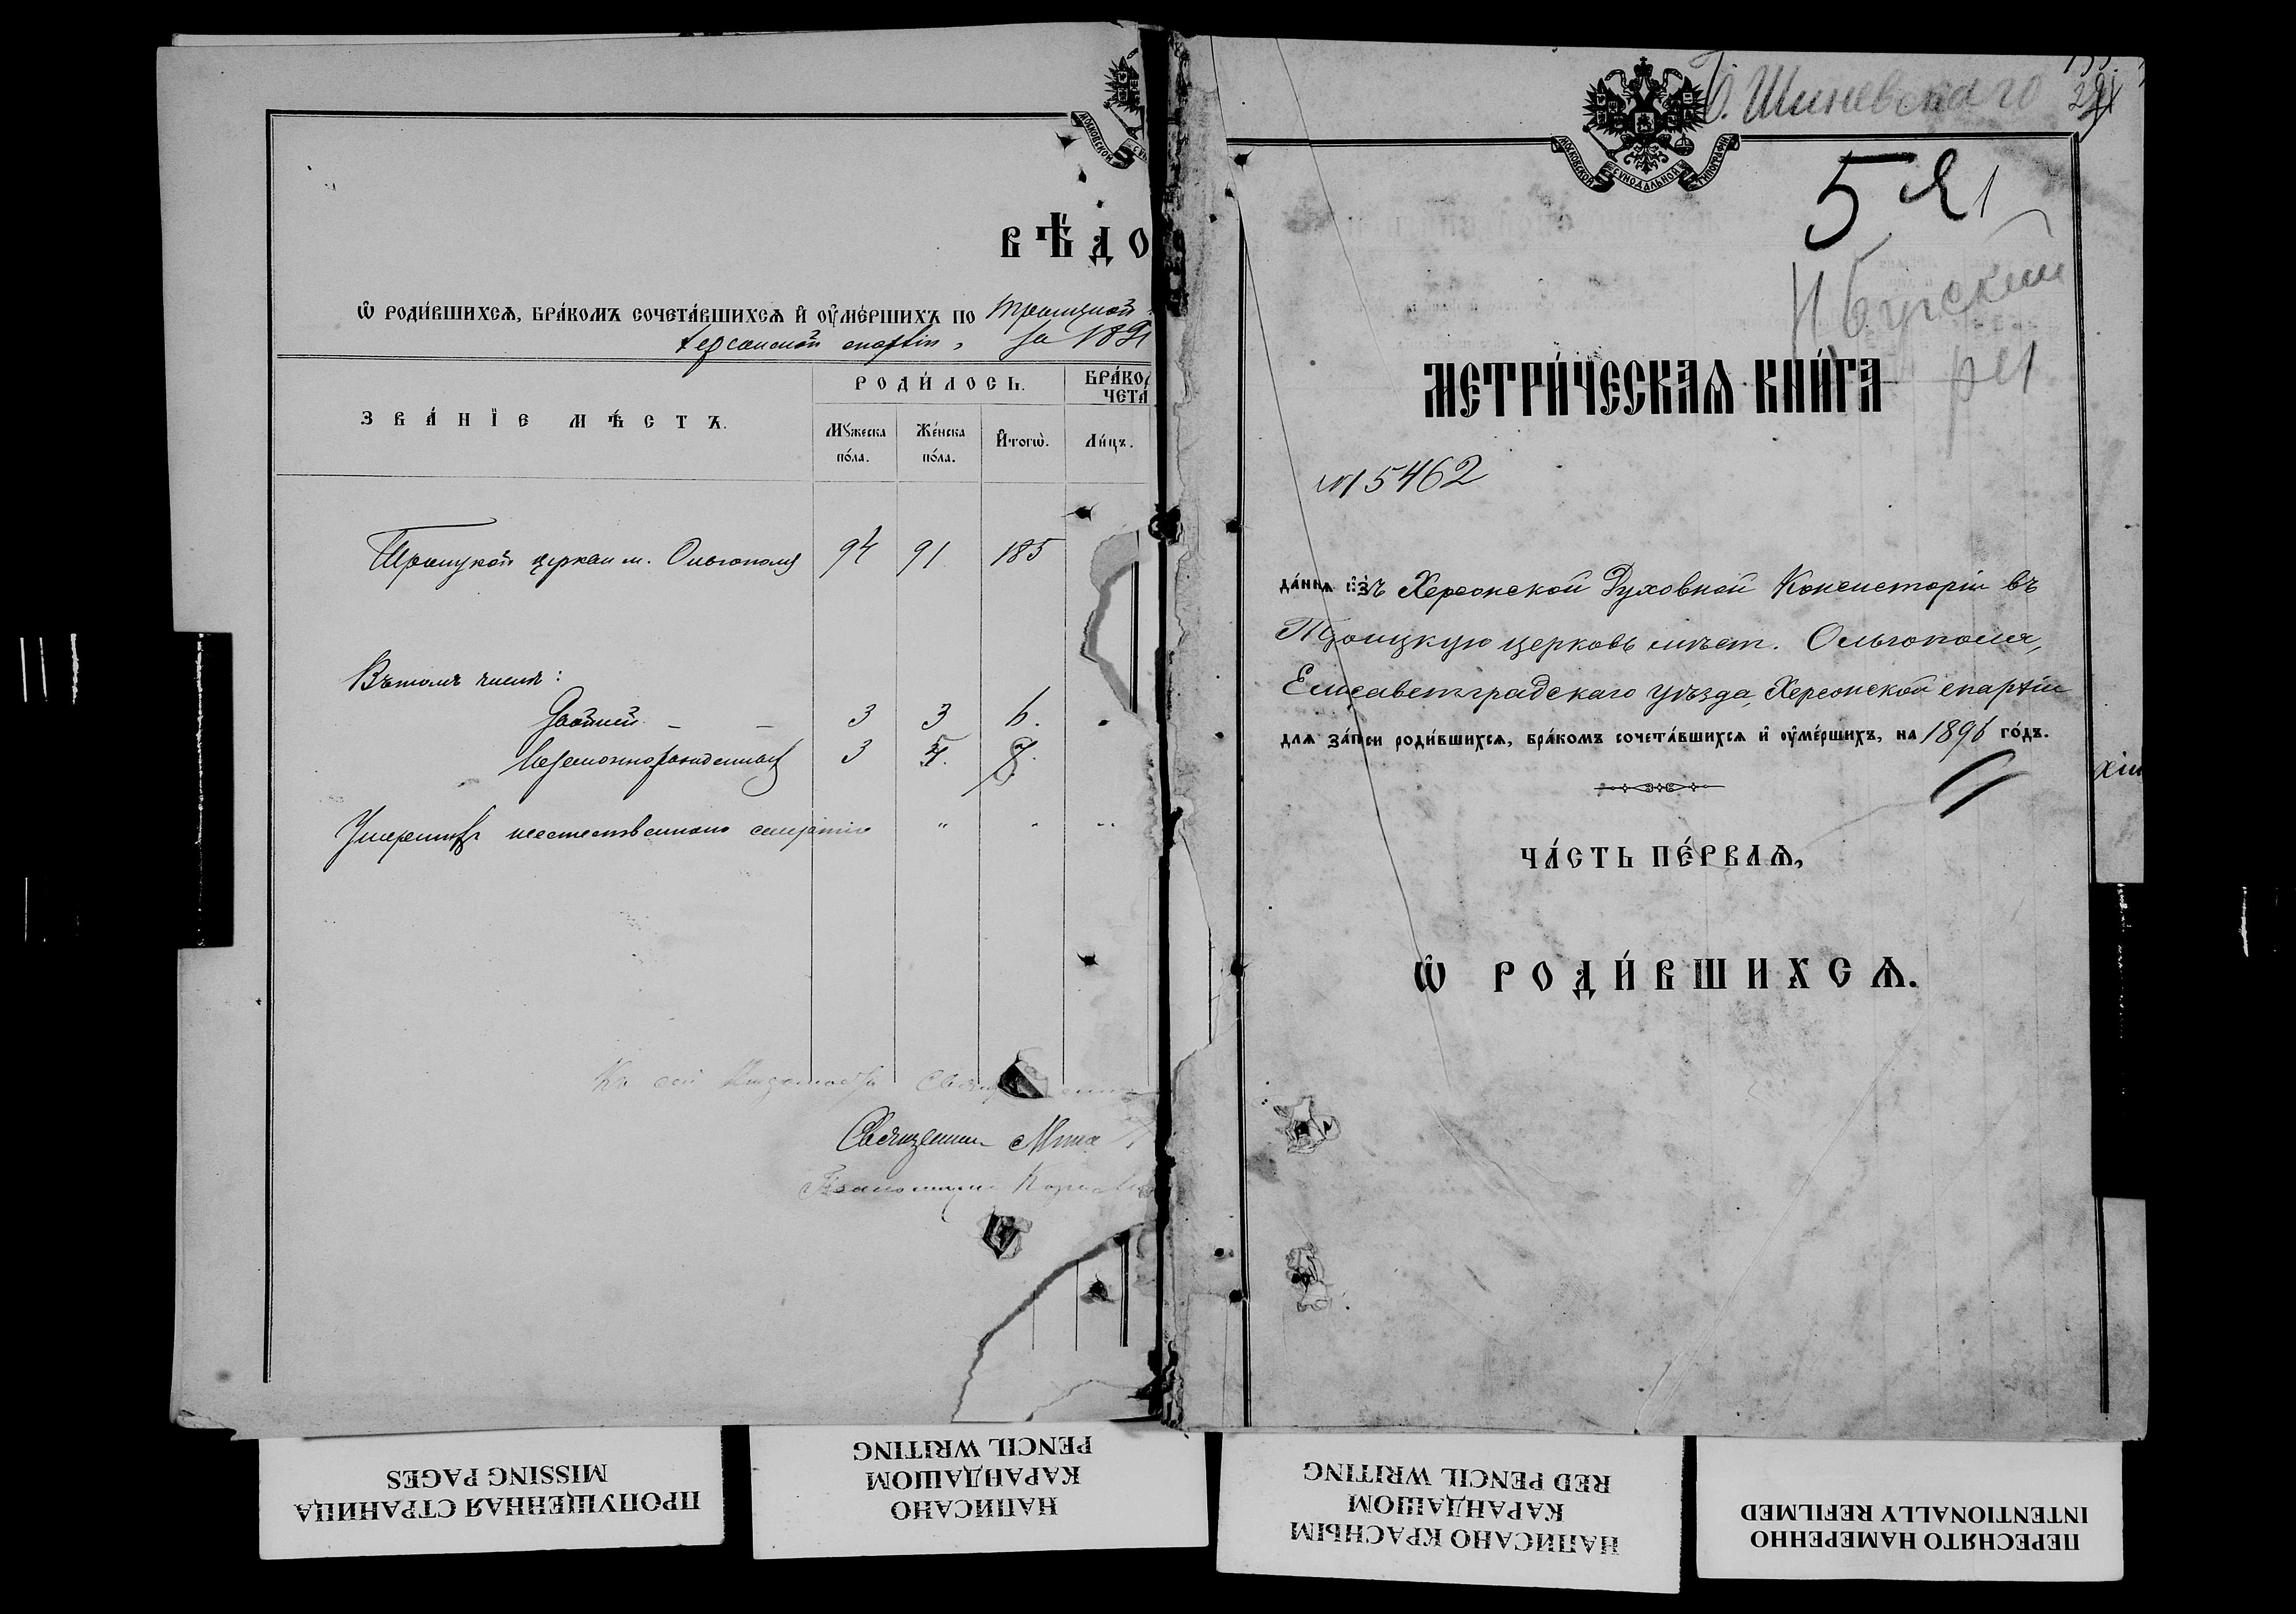 ВѢДО
Ѡ РОДИ́ВШИХСѦ, БРА́КОМЪ СОЧЕТА́ВШИХСѦ И҆ ОУ҆МЕ́РШИХЪ ПО Троицкой
Херсонской епархіи, за 189
ЗВА́НІЕ МѢ́СТЪ.
РОДИ́ЛОСЬ.
БРА́КО
ЧЕТА
Мꙋжеска по́ла.
Же́нска по́ла.
И҆тогѡ̀.
Ли́цъ.
Троицкой церкви м. Ольгополя 94 91 185
Въ томъ числѣ:
Двойней — — 3 3 6.
Незаконнорожденныхъ 3
Умершихъ неестественною смертію " " "
Священник
МОСКОВСКОЙ
МОСКОВСКОЙ СѴНОДАЛЬНОЙ ТИПОГРАФІИ
О. Шиневскаго
5 я 1
МЕТРИ́ЧЕСКАѦ КНИ́ГА
№ 15462
да́нна и҆зъ Херсонской Духовной Консисторіи въ
Троицкую церковь мѣст. Ольгополя,
Елисаветградскаго уѣзда, Херсонской епархіи
для за́писи роди́вшихсѧ, бра́комъ сочета́вшихсѧ и҆ оу҆ме́ршихъ, на 1896 го́дъ.
ЧА́СТЬ ПЕ́РВАѦ,
Ѡ РОДИ́ВШИХСѦ.
ПРОПУЩЕННАЯ СТРАНИЦА
MISSING PAGES
НАПИСАНО
КАРАНДАШОМ
PENCIL WRITING
НАПИСАНО КРАСНЫМ
КАРАНДАШОМ
RED PENCIL WRITING
ПЕРЕСНЯТО НАМЕРЕННО
INTENTIONALLY REFILMED